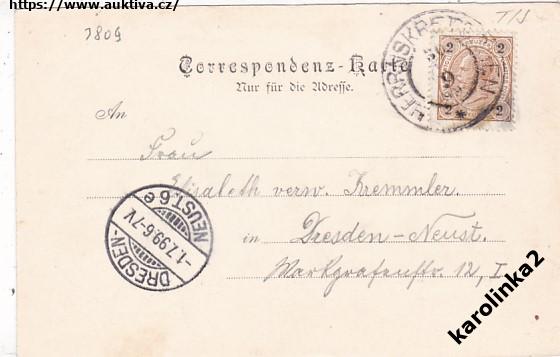 https://www.auktiva.cz/
2809
T/S
HERRNSKRETSCHEN
2 2
9
2 2
Correspondenz-Karte
Nur für die Adresse.
An
Frau
Elisabeth verw. Kremmler.
in Dresden-Neust.
Markgrafenstr. 12, I
DRESDEN-NEUST. 6 e
-1.7.99.6-7V.
karolinka2